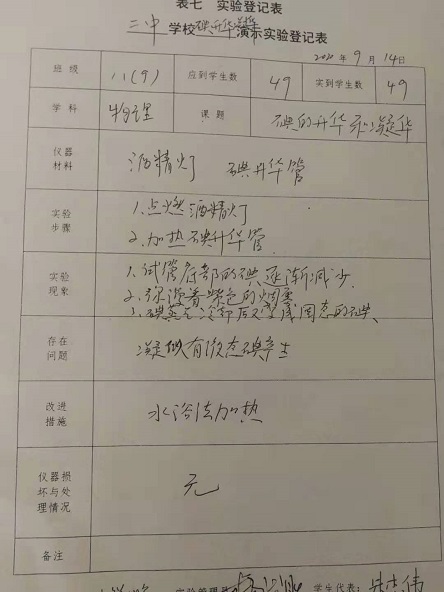 表七 实验登记表
二中 学校 碘升华凝华 演示实验登记表
2020 年 9 月 14 日
班级 八(9) 应到学生数 49 实到学生数 49
学科 物理 课题 碘的升华和凝华
仪器材料 酒精灯 碘升华管
实验步骤 1.点燃酒精灯
2.加热碘升华管
实验现象 1.试管底部的碘逐渐减少
2.弥漫着紫色的烟雾
3.碘蒸气冷却后又变成固态的碘、
存在问题 凝似有液态碘产生
改进措施 水浴法加热
仪器损坏与处理情况 无
备注
实验管理员 学生代表：